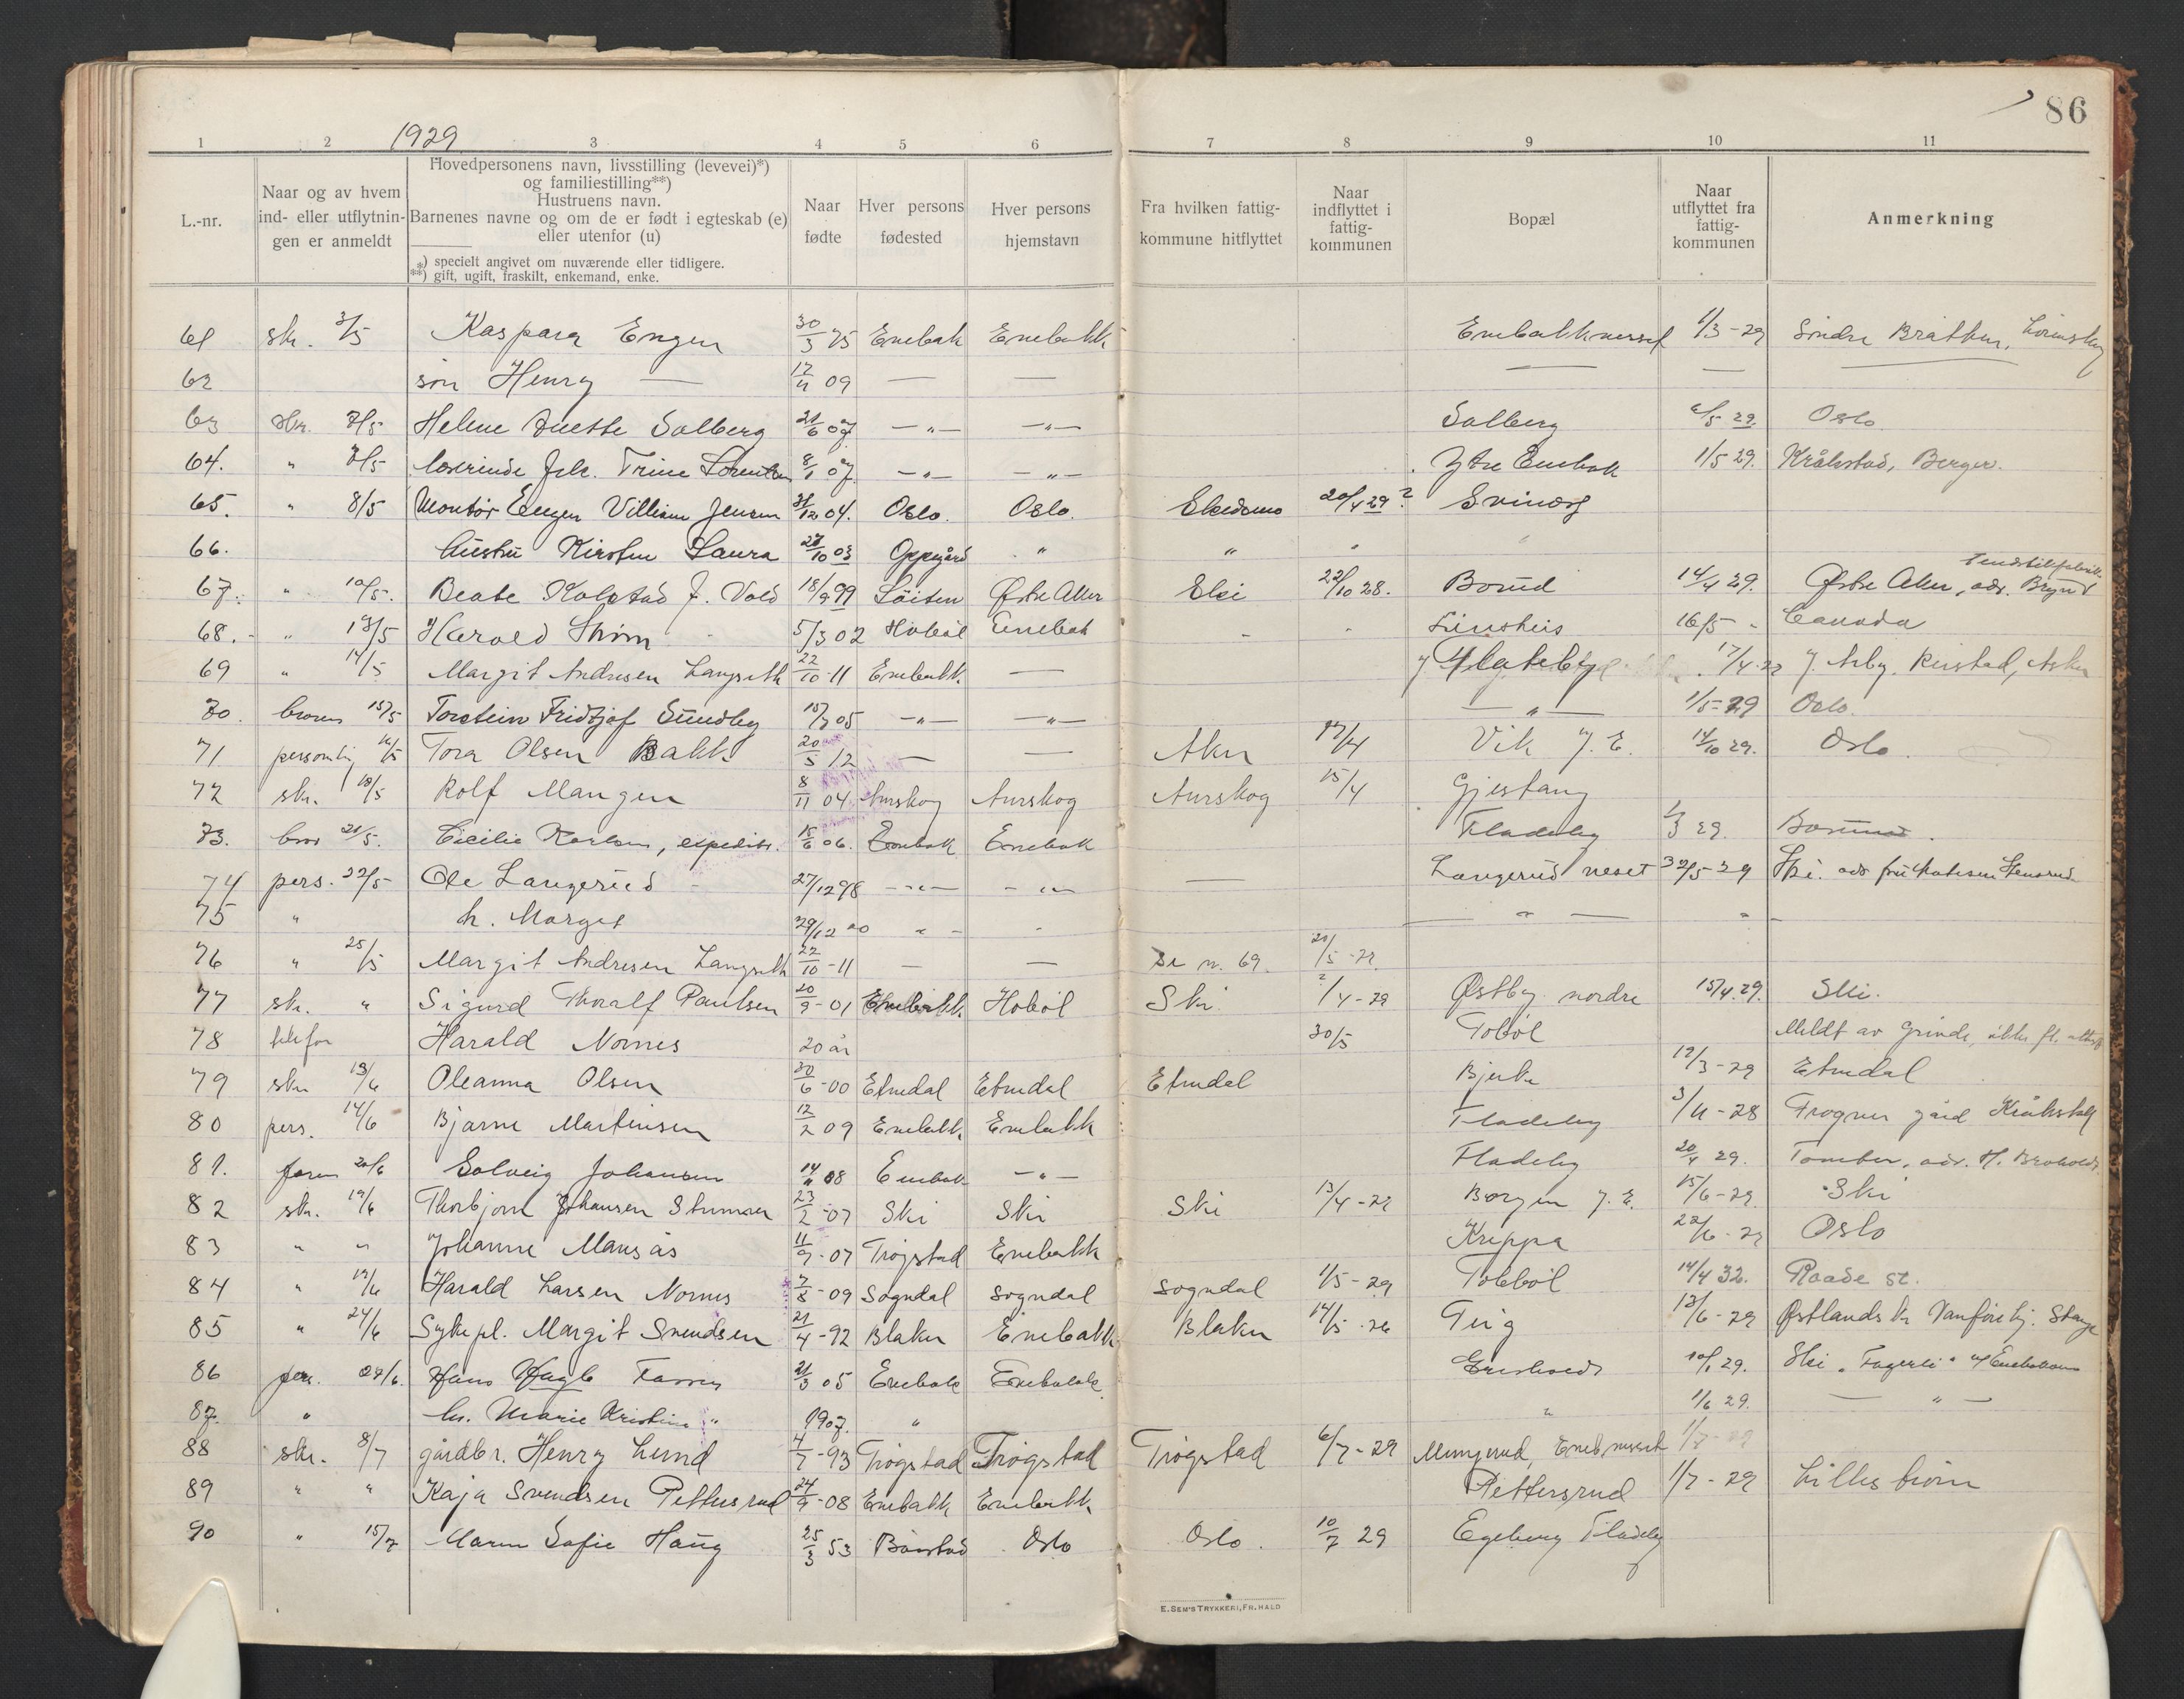 86
1929
1 2 3 4 5 6 7 8 9 10 11
L.-nr.
Naar og av hvem
ind- eller utflytnin-
gen er anmeldt
Hovedpersonens navn, livsstilling (levevei)*)
og familiestilling**)
Hustruens navn.
Barnenes navne og om de er født i egteskab (e)
eller utenfor (u)
*) specielt angivet om nuværende eller tidligere.
**) gift, ugift, fraskilt, enkemand, enke.
Naar
fødte
Hver persons
fødested
Hver persons
hjemstavn
Fra hvilken fattig-
kommune hitflyttet
Naar
indflyttet i
fattig-
kommunen
Bopæl
Naar
utflyttet fra
fattig-
kommunen
Anmerkning
61 skr. 3/5 Kaspara Engen 30/3 75 Enebak Enebakk Enebakkneset 1/3-29 Søndre Bråthen,
62 søn Henry — 12/4 09 — — — —
63 skr. 7/5 Helene Anette Solberg 21/6 07 —"— —"— Solberg 6/5 29. Oslo
64. " 7/5 lærerinde frk. Trine 8/1 07 —"— —"— Ytre Enebak 1/5 29. Kråkstad, Berger.
65. " 8/5 Montør Eugen Villiam Jensen 31/12 04. Oslo. Oslo. Skedsmo 20/4 29? Svinaas
66. hustru Kirsten Laura 27/10 03 Oppegård " " "
67. " 10/5. Beate Kolstad f. Vold 18/9 99 Löiten Østre Aker Ski 22/10 28. Borud 14/4 29. Østre Aker, adr. Bryn
68. " 13/5 Harald Strøm 5/3 02 Hobøl Enebak Linshus 16/5 " Canada
69 " 14/5 Margit Andresen Langseth 22/10-11 Enebakk — Flateby 17/4-29
70. broren 15/5 Torstein Fridtjof Sundby 15/7 05 —"— —"— —"— 1/5-29 Oslo.
71 personlig 16/5 Tora Olsen Bakk 20/5 12 — — Aker 17/4 Vik Y. E. 14/10 29. Oslo.
72 skr. 18/5 Rolf Mangen 8/11 04 Aurskog Aurskog Aurskog 15/4 Gjestang
73. bror 21/5. Cicilie Karlsen, expeditr. 15/6 06. Enebak Enebak Fladeby 1/3 29.
74 pers. 22/5 Ole Langerud 27/12 98 —"— —"— — Langerud neset 30/5-29 Ski.
75 " h. Margit 29/12 00 " " —"— "
76 " 25/5 Margit Andresen Langseth 22/10-11 — — Se n. 69. 20/5-29.
77 skr. " Sigurd Thoralf Paulsen 20/9-01 Enebakk Hobøl Ski 2/4-29 Østby nordre 15/4.29. Ski.
78 telefon Harald Nornes 20 år 30/5 Tobøl Meldt av Grinde,
79 skr 13/6 Oleanna Olsen 30/6-00 Etnedal Etnedal Etnedal Bjerke 12/3-29 Etnedal
80 pers. 14/6 Bjarne Martinsen 12/2 09 Enebakk Enebakk Fladeby 3/4-28 Frogner gård Kråkstad
81. faren 20/6 Solveig Johansen 14/11 08 Enebak —"— Fladeby 20/4 29. Tomter, adr. H.
82 skr. 19/6 Thorbjørn Johansen 23/2-07 Ski Ski Ski 13/4-29 Borgen Y. E. 15/6-29. Ski
83 " " Johanne Mansås 11/9-07 Trøgstad Enebakk Kreppa 22/6-29 Oslo
84 " 19/6 Harald Larsen Nornes 7/8-09 Sogndal Sogndal Sogndal 1/5-29 Tobbøl 14/4 32. Raade st.
85 " 24/6 Sykepl. Margit Svendsen 21/4-92 Blaker Enebakk Blaker 14/5-26 Teig 13/6-29 Østlandske Vanførehj. Stange
86 pers. 27/6. Hans 21/3 05 Enebak Enebakk 10/1 29. Ski "Fagerli"
87. " hu. Marie Kristine " 1907. " " 1/6 29. —"—
88 skr. 8/7 gårdbr. Henry Lund 4/7-93 Trøgstad Trøgstad Trøgstad 6/7-29 Mungerud, Eneb.neset 1/7-29
89 " " Kaja Svendsen Pettersrud 24/9-08 Enebakk Enebakk Pettersrud 1/7-29 Lillestrøm
90 " 15/7 Maren Sofie Haug 25/3 53 Båstad Oslo Oslo. 10/7 29 Egeberg Fladeby
E. SEM'S TRYKKERI, FR.HALD